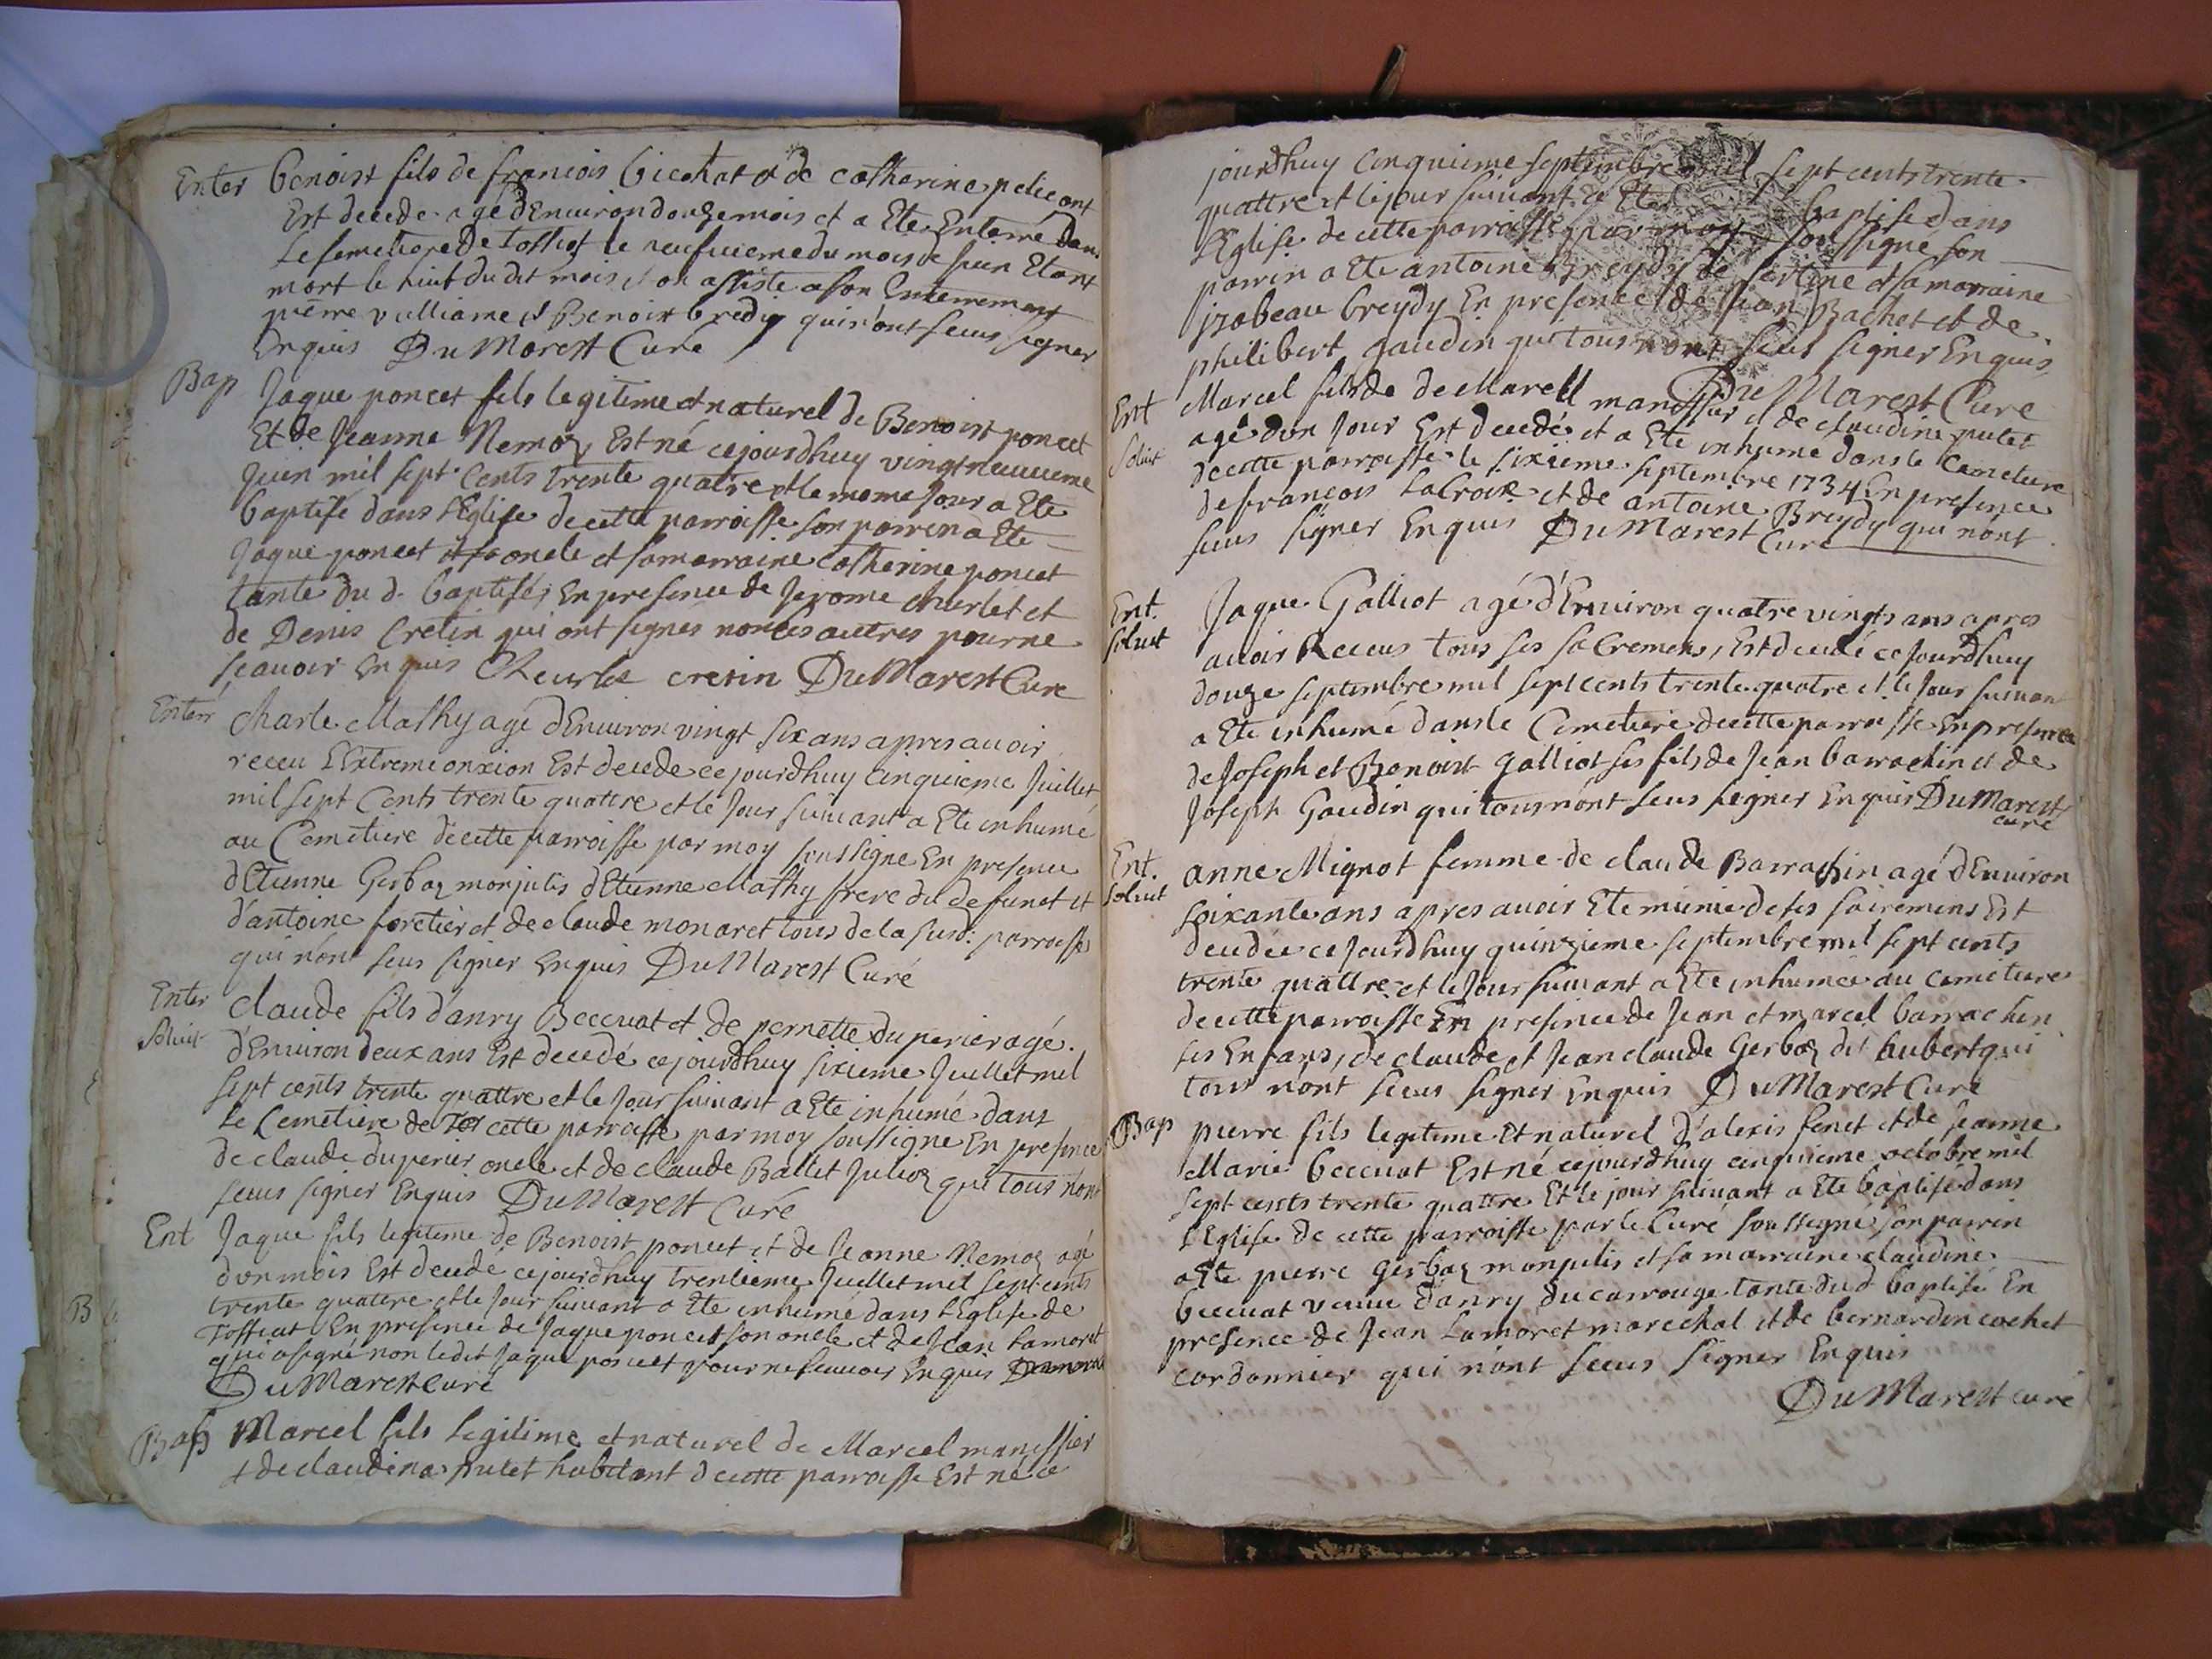 Enter benoist fils de francois bichat & de catherine pelicont
Est decede agé d'Environ douze mois et a Ete Enterré dans
Le semetiere de Tossiat le neufuieme du mois de juin Etant
mort le huit du dit mois et on assiste a son Enterrement
pierre vulliame et Benoist bredy qui n'ont sceus signer
Enquis DuMarest Curé
Bap Jaque poncet fils legitime et naturel de Benoist poncet
Et de Jeanne Nemoz Est né cejourdhuy vingtneuuieme
Juin mil sept cents trente quatre et le meme Jour a Ete
baptisé dans l'Eglise de cette parroisse son parrin a Ete
Jaque poncet oncle et sa marraine catherine poncet
tante du d. baptisé, En presence de Jerome churlet et
de Denis Cretin qui ont signes non les autres pour ne
sçauoir Enquis Cheurlet cretin DuMarest Cure
Enterr Charle Mathy agé d'Enuiron vingt six ans apres auoir
receu L'Extremeonxion Est decede cejourdhuy cinquieme Juillet
mil sept Cents trente quattre et le Jour suiuant a Ete inhumé
au Cemetiere de cette parroisse par moy soussigne En presence
d'Etienne Gerbaz monpulis d'Etienne Mathy frere du defunct et
d'antoine foretier et de claude monaret tous de la susd. parroisse
qui n'ont seus signer Enquis DuMarest Curé
Enter claude fils d'anry Beccuat et de pernette duperier agé
Soluit d'Enuiron deux ans Est decedé cejourdhuy sixieme Juillet mil
sept cents trente quattre et le Jour suiuant a Ete inhumé dans
le Cemetiere de Tos cette parroisse par moy soussigne En presence
de claude duperier oncle et de claude Ballet Julioz qui tous n'ont
seuus signer Enquis DuMarest Curé
Ent Jaque fils legitime de Benoist poncet et de Jeanne Nemoz agé
d'un mois Est decedé cejourdhuy trentieme Juillet mil sept cents
trente quattre et le Jour suiuant a Ete inhumé dans l'Eglise de
Tossiat En presence de Jaque poncet son oncle et de Jean Lamoret
qui a signé non ledit Jaque poncet pour ne scauoir Enquis
DuMarest curé
Bap Marcel fils legitime et naturel de Marcel manissier
& de claudina putet habitant de cette parroisse Est né ce
jourdhuy cinquieme septembre mil sept cents trente
quattre et le jour suiuant a Ete baptise dans
l'Eglise de cette parroisse par moy soussigne son
parrin a Ete antoine breydy de sertine et sa marraine
jzabeau breydy En presence de Jean Bachet et de
philibert gaudin qui tous n'ont seus signer Enquis
DuMarest Cure
Ent Marcel fils de de Marcell manissier et de claudine putet
Soluit agé d'un Jour Est decedé et a Ete inhume dans le Cemetiere
de cette parroisse le sixieme septembre 1734 En presence
de francois LaCroix et de antoine Breydy qui n'ont
seuus signer Enquis DuMarest Curé
Ent. Jaque Galliot agé d'Enuiron quatre vingts ans apres
soluit auoir Receus tous ses sacremens, Est decedé ce Jourdhuy
douze septembre mil sept cents trente quatre et le Jour suiuant
a Ete inhumé dans le Cemetiere de cette parroisse En presence
de Joseph et Benoist galliot ses fils de Jean barrachin et de
Joseph Gaudin qui tous n'ont seus signer Enquis DuMarest
curé
Ent. anne Mignot femme de claude Barrachin agé d'Enuiron
soluit soixante ans apres auoir Ete munie de ses sacremens Est
decedée ce Jourdhuy quinzieme septembre mil sept cents
trente quattre et le Jour suiuant a Ete inhumée au cemetiere
de cette parroisse En presence de Jean et marcel barrachin
ses Enfans, de claude et Jean claude Gerbaz dit hubert qui
tous n'ont sceus signer Enquis DuMarest Curé
Bap pierre fils legitime Et naturel d'alexis fenet et de Jeanne
Marie beccuat Est né cejourdhuy cinquieme octobre mil
sept cents trente quattre Et le jour suiuant a Ete baptisé dans
l'Eglise de cette parroisse par le Curé soussigné, son parrin
a Ete pierre gerbaz monpulis et sa marraine claudine
beccuat veuue d'anry ducarrouge tante du d baptisé En
presence de Jean Lamoret marechal et de bernardin cochet
cordonnier qui n'ont sceus signer Enquis
DuMarest curé